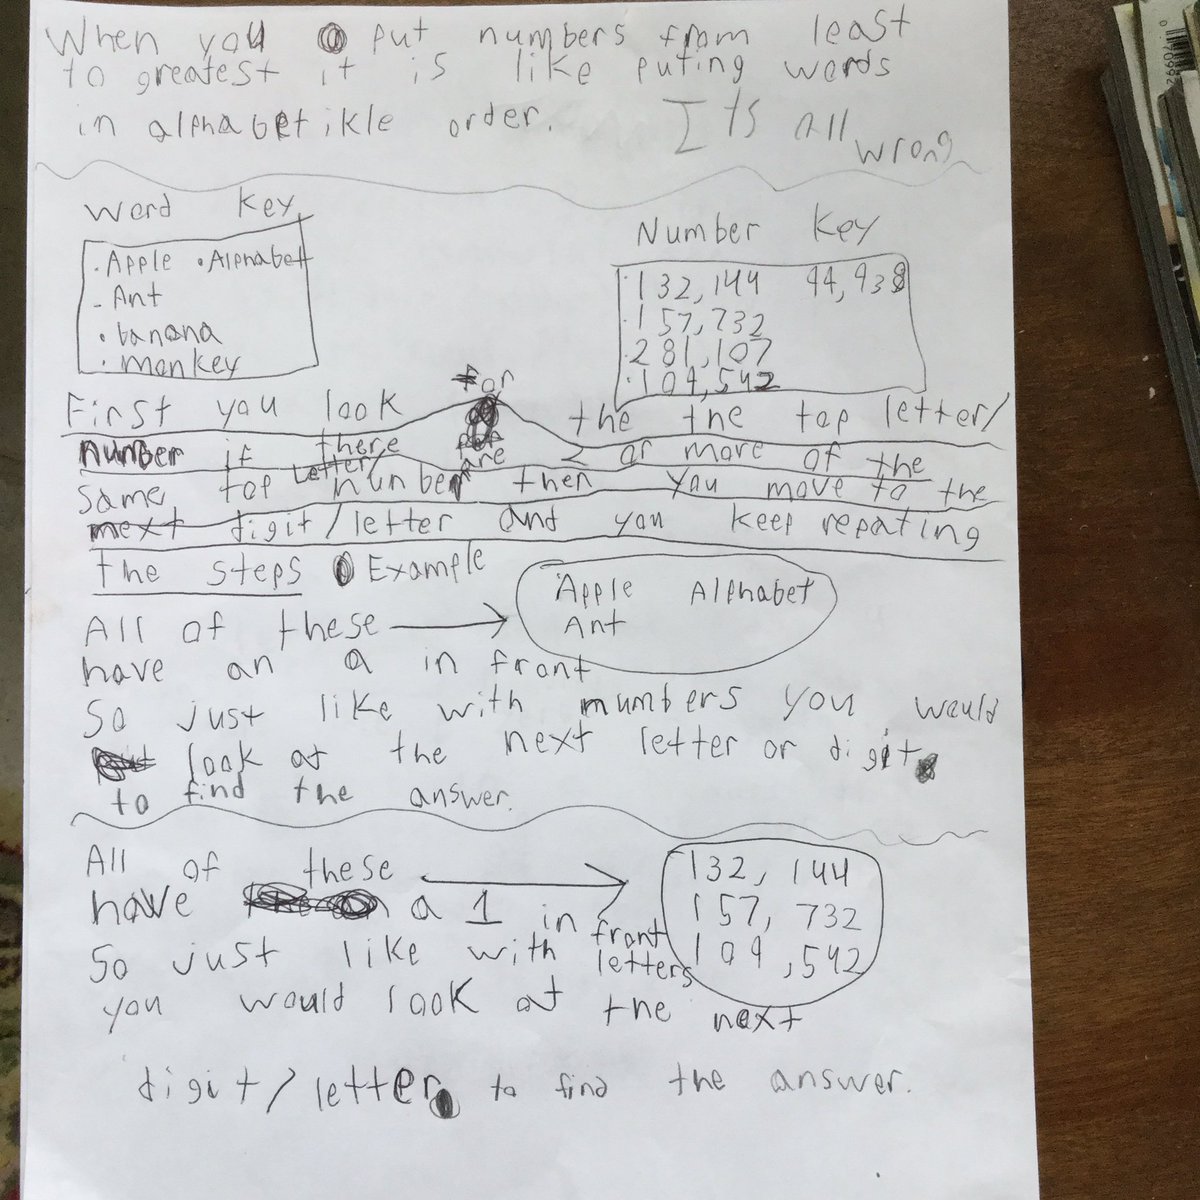 When you put numbers from least
to greatest it is like puting words
in alphabetikle order. Its all
wrong
Word Key
Apple • Alphabet
- Ant
• banana
• monkey
Number Key
132,144 94,938
157,732
281,107
109,542
For
First you look the the top letter/
number if there are 2 or more of the
same top letter/number then you move to the
next digit/letter and you keep repating
the steps Example
Apple Alphabet
Ant
All of these
have an a in front
So just like with numbers you would
look at the next letter or digit
to find the answer.
All of these
have a 1 in front
132, 144
157, 732
109,542
So just like with letters
you would look at the next
digit/letter to find the answer.